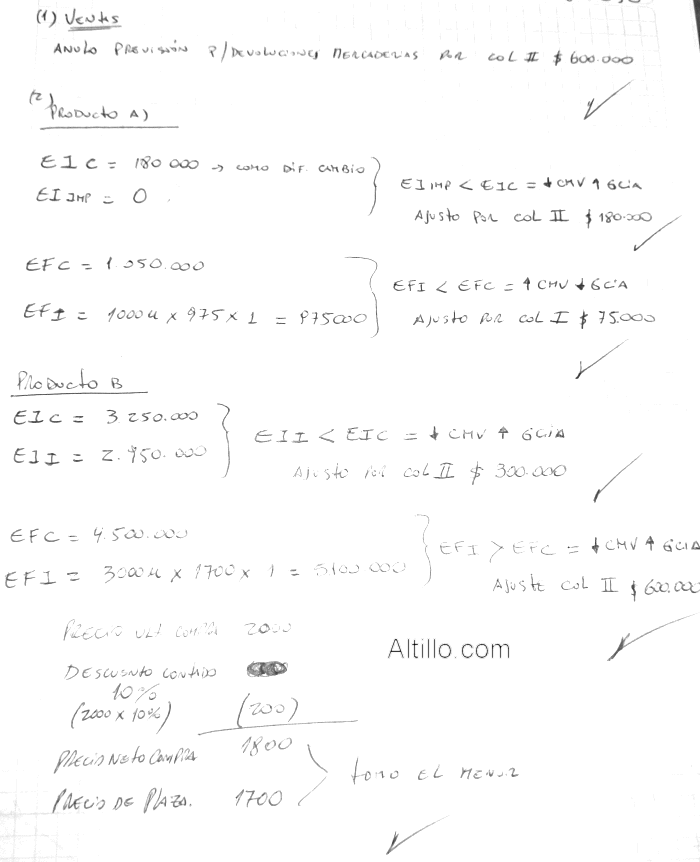 (1) VENTAS
ANULO PREVISIÓN P/DEVOLUCIONES MERCADERIAS POR COL II $ 600.000
(2)
PRODUCTO A)
EIC = 180 000 → COMO DIF. CAMBIO
EI IMP = 0
EI IMP < EIC = ↓ CMV ↑ GCIA
AJUSTO POR COL II $ 180.000
EFC = 1.050.000
EFI = 1000 u × 975 × 1 = 975000
EFI < EFC = ↑ CMV ↓ GCIA
AJUSTO POR COL I $ 75.000
PRODUCTO B
EIC = 3.250.000
EII = 2.950.000
EII < EIC = ↓ CMV ↑ GCIA
AJUSTO POR COL II $ 300.000
EFC = 4.500.000
EFI = 3000 u × 1700 × 1 = 5100 000
EFI > EFC = ↓ CMV ↑ GCIA
AJUSTE COL II $ 600.000
PRECIO ULT COMPRA 2000
Altillo.com
DESCUENTO CONTADO
10%
(2000 × 10%) (200)
PRECIO NETO COMPRA 1800
PRECIO DE PLAZA. 1700
TOMO EL MENOR